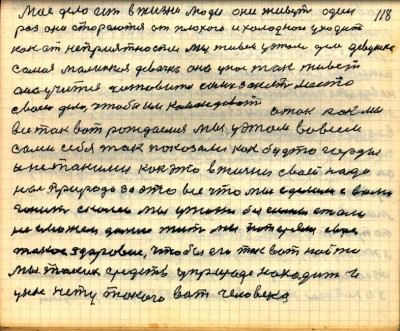 Мое дело есть в жизни люди они живут один 118
раз они стораются от плохого и холодного уходит
как от неприятности мы такие у этом деле девушка
самая маленкая девочка она уже так живет
она учится готовить сама занеть место
своем деле чтобы им командовать а так как мы
все так вот рождаемся мы у этом во всем
сами себя так показали как будто герои
а не такими как это в жизни своей надо
нам природа за это все что мы сделали с вами
гонит скорей мы уже бы стали
не сможем даже жить мы потеряли свое
такое здоровие, чтобы его так вот найти
мы таких средств у природе находить и
уже нету такого вот человека